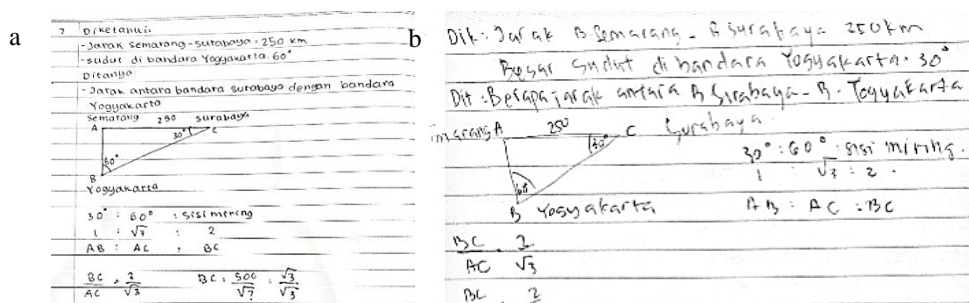 a
7 Diketahui:
-Jarak Semarang-Surabaya: 250 km
-sudut di bandara Yogyakarta 60°
Ditanya
-Jarak antara bandara surabaya dengan bandara
Yogyakarta
Semarang 250 surabaya
A 30° C
60°
B
Yogyakarta
30° : 60° : sisi mering
1 : √3 : 2
AB : AC : BC
BC/AC = 2/√3 BC : 500/√3 : √3/√3
b
Dik: Jarak B Semarang - B Surabaya 250 km
Besar Sudut di bandara Yogyakarta. 30°
Dit :Berapa jarak antara B Surabaya - B. Yogyakarta
marang A 250 C Surabaya
30°
60°
B Yogyakarta
30° : 60° : sisi miring.
1 : √3 : 2.
AB : AC : BC
BC/AC 2/√3
BC 2